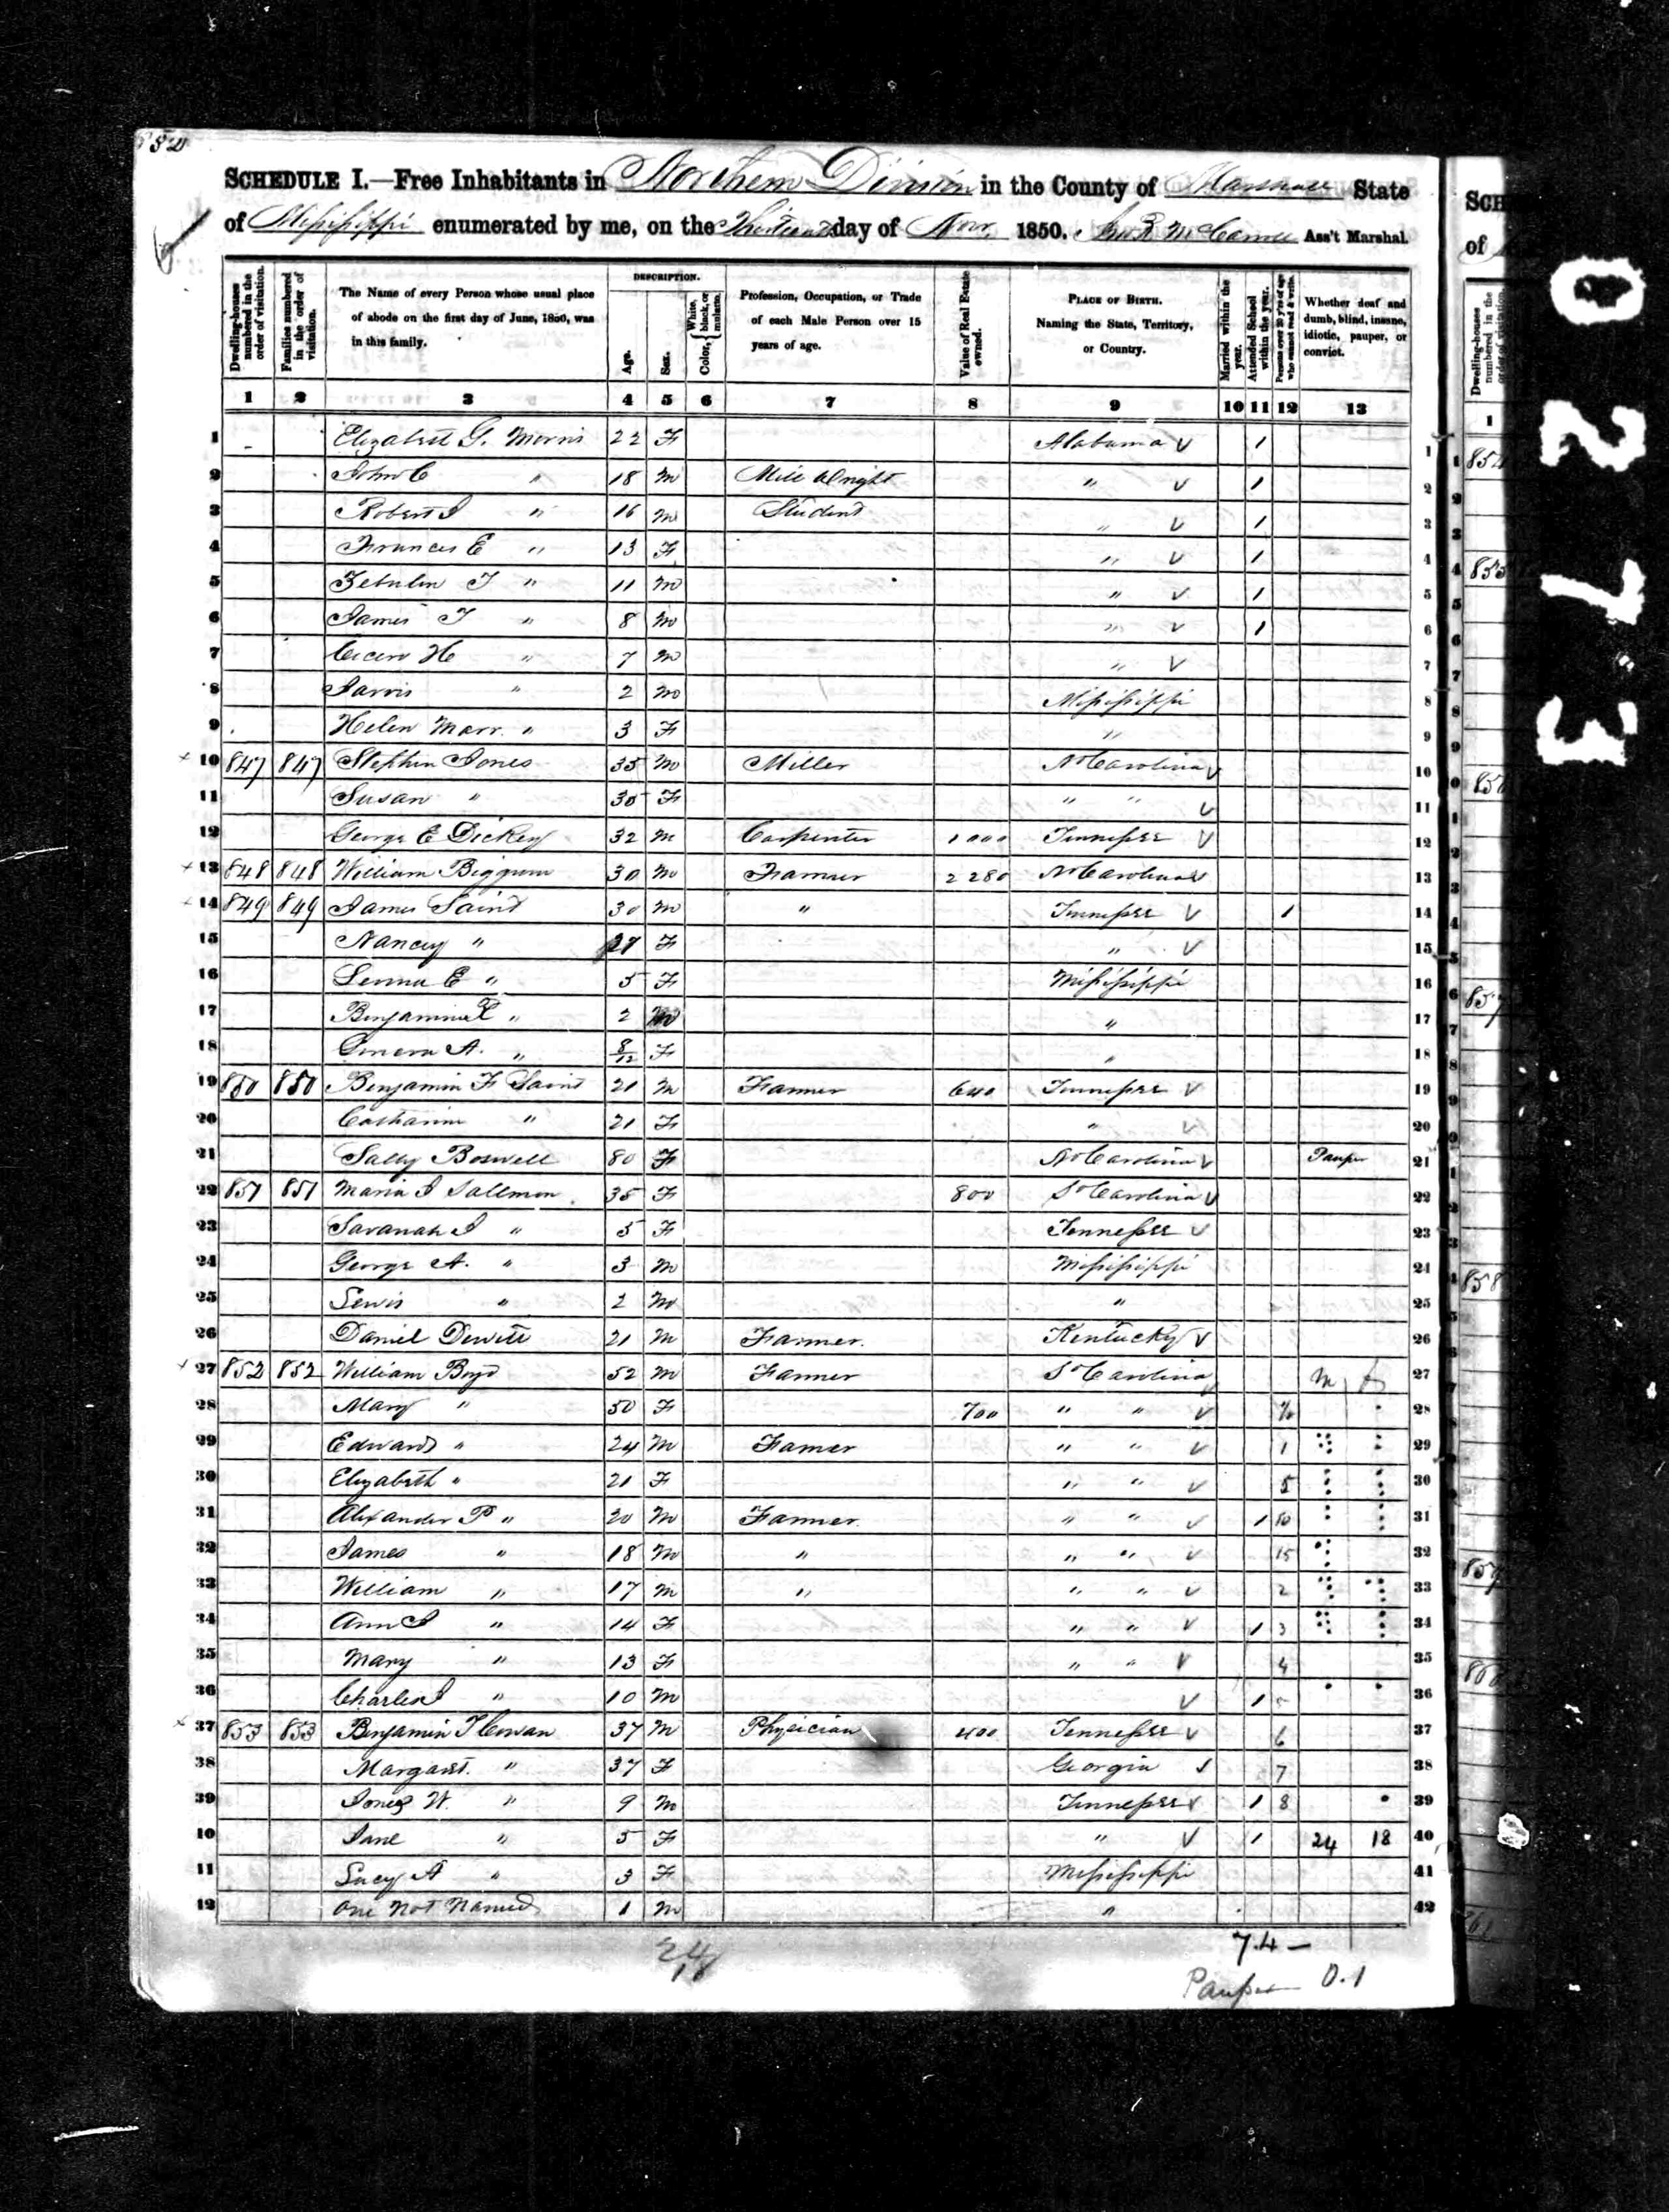 SCHEDULE I.—Free Inhabitants in Northern Division in the County of Marshall State
of Mississippi enumerated by me, on the Thirteenth day of Nov. 1850. McCarroll Ass't Marshal.
Dwelling-houses numbered in the order of visitation.
Families numbered in the order of visitation.
The Name of every Person whose usual place of abode on the first day of June, 1850, was in this family.
DESCRIPTION.
Age.
Sex.
Color, White, black, or mulatto.
Profession, Occupation, or Trade of each Male Person over 15 years of age.
Value of Real Estate owned.
PLACE OF BIRTH. Naming the State, Territory, or Country.
Married within the year.
Attended School within the year.
Persons over 20 years of age who cannot read & write.
Whether deaf and dumb, blind, insane, idiotic, pauper, or convict.
1 2 3 4 5 6 7 8 9 10 11 12 13
1 Elizabeth G. Morris 22 F Alabama 1 1
2 John C " 18 M Mill Wright " 1 2
3 Robert J " 16 M Student " 1 3
4 Frances E " 13 F " 1 4
5 Zebulin T " 11 M " 1 5
6 James T " 8 M " 1 6
7 Cicero H " 7 M " 7
8 Jarvis " 2 M Mississippi 8
9 Helen Marr. " 3 F " 9
10 847 847 Stephen Jones 35 M Miller N Carolina 10
11 Susan " 30 F " " 11
12 George E Dickey 32 M Carpenter 1000 Tennessee 12
13 848 848 William Biggum 30 M Farmer 2280 N Carolina 13
14 849 849 James Saint 30 M " Tennessee 1 14
15 Nancy " 27 F " 15
16 E " 5 F Mississippi 16
17 Benjamin F " 2 M " 17
18 A. " 8/12 F " 18
19 850 850 Benjamin F Saint 21 M Farmer 640 Tennessee 19
20 Catharine " 21 F " 20
21 Sally Boswell 80 F N Carolina Pauper 21
22 851 851 Maria J Sallmon 35 F 800 S Carolina 22
23 Savanah J " 5 F Tennessee 23
24 George A. " 3 M Mississippi 24
25 Lewis " 2 M " 25
26 Daniel Dewitt 21 M Farmer. Kentucky 26
27 852 852 William Boyd 52 M Farmer S Carolina M F 27
28 Mary " 50 F 700 " " 28
29 Edward " 24 M Farmer " " 1 29
30 Elizabeth " 21 F " " 5 30
31 Alexander P " 20 M Farmer. " " 1 10 31
32 James " 18 M " " " 15 32
33 William " 17 M " " " 2 33
34 Ann J " 14 F " " 1 3 34
35 Mary " 13 F " " 4 35
36 Charles J " 10 M 1 36
37 853 853 Benjamin T Cowan 37 M Physician 400 Tennessee 6 37
38 Margaret. " 37 F Georgia 7 38
39 Jones W. " 9 M Tennessee 1 8 39
40 Jane " 5 F " 1 24 18 40
41 Lucy A " 3 F Mississippi 41
42 One Not Named 1 M " 42
24
18
7.4 —
Pauper 0.1
0273